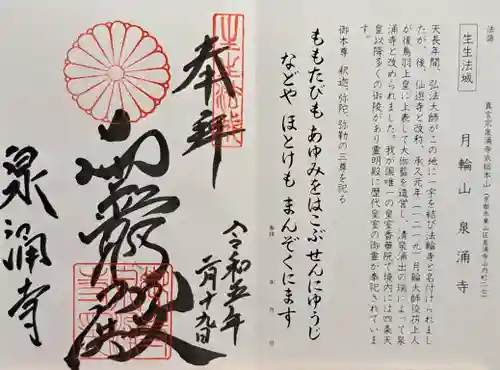 法語
生生法城
真言宗泉涌寺派総本山(京都市東山区泉涌寺山内町二七)
月輪山 泉涌寺
天長年間、弘法大師がこの地に一宇を結び法輪寺と名付けられまし
たが、後、仙遊寺と改称、承久元年(一二一九)月輪大師俊芿上人
が後鳥羽上皇に上表して大伽藍を造営し、清泉涌出の瑞によって泉
涌寺と改められました。我が国唯一の皇室香華院で境内には四条天
皇以降多くの御陵があり霊明殿に歴代皇室の御霊が奉祀されていま
す。
御本尊 釈迦、弥陀、弥勒の三尊を祀る
ももたびも あゆみをはこぶ せんにゆうじ
などや ほとけも まんぞくにます
参拝 年 月 日
奉拝
令和五年
二月十九日
泉涌寺